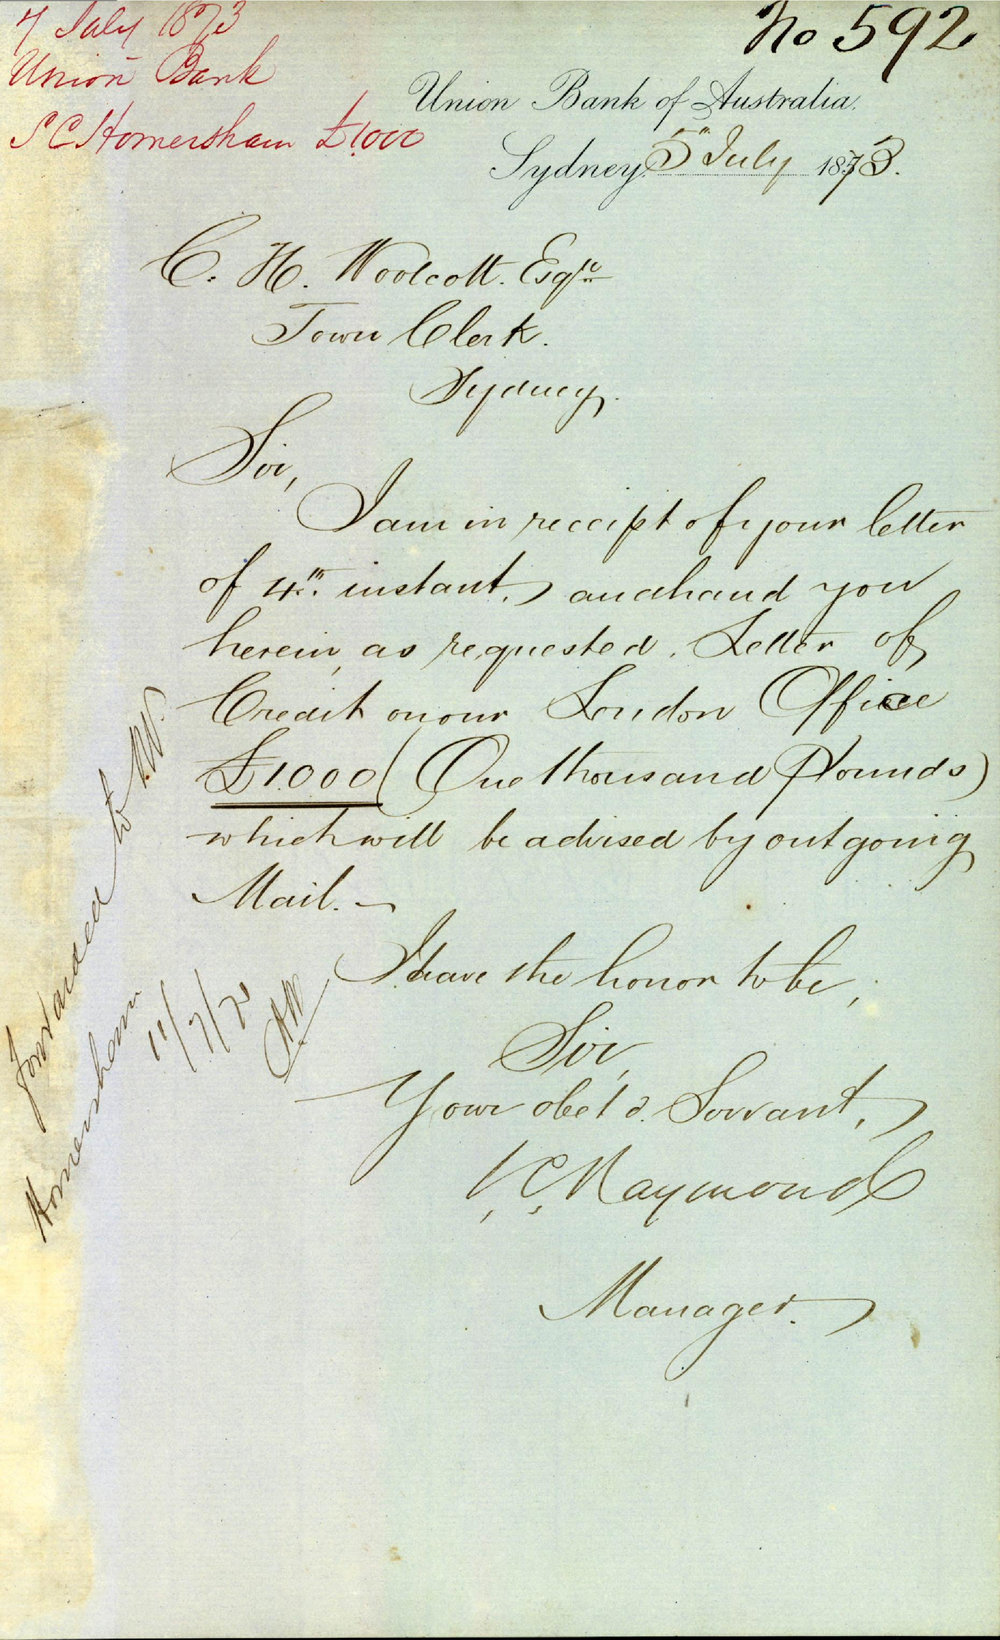 7 July 1873
Union Bank
S C Homersham £1,000
No 592
Union Bank of Australia.
Sydney. 5th July 1873.
C. H. Woolcott. Esqre
Town Clerk.
Sydney.
Sir,
I am in receipt of your letter
of 4th instant, and hand you
herein, as requested. Letter of
Credit on our London Office
£1000 (One thousand Pounds)
which will be advised by outgoing
Mail. —
I have the honor to be,
Sir,
Your obedt. Servant,
Raymond
Manager.
Forwarded to W.
Homersham
11/7/73